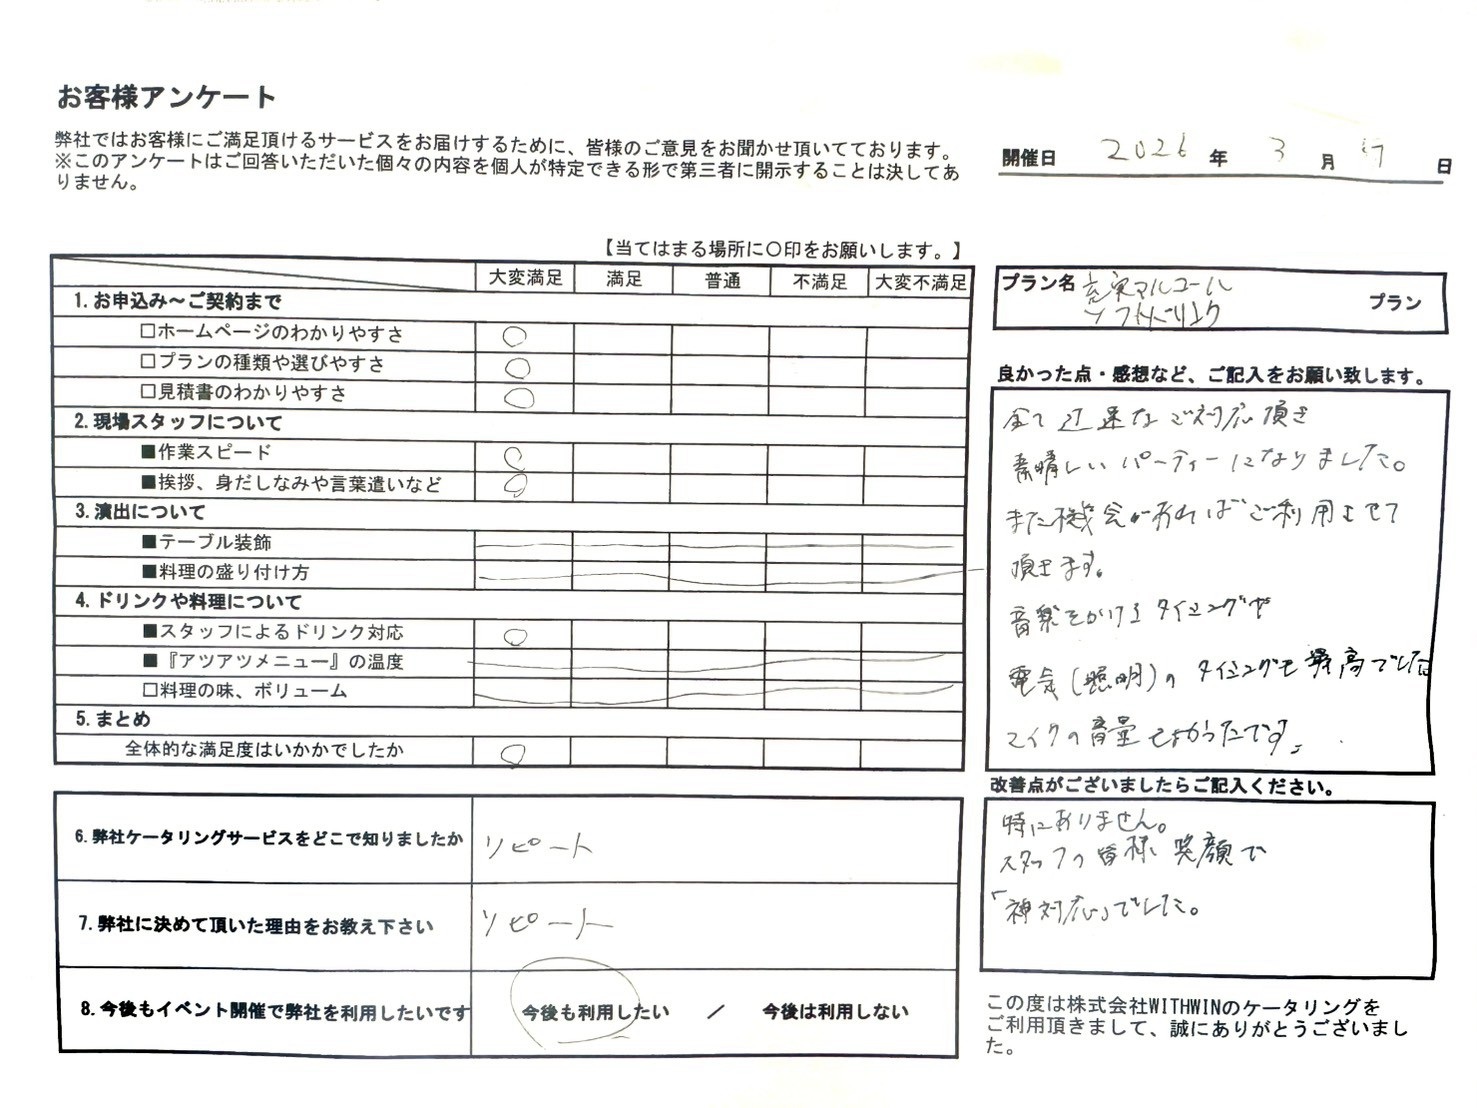 お客様アンケート
弊社ではお客様にご満足頂けるサービスをお届けするために、皆様のご意見をお聞かせ頂いてております。
※このアンケートはご回答いただいた個々の内容を個人が特定できる形で第三者に開示することは決してあ
りません。
開催日 2026 年 3 月 日
【当てはまる場所に○印をお願いします。】
大変満足 満足 普通 不満足 大変不満足
1.お申込み～ご契約まで
□ホームページのわかりやすさ ○
□プランの種類や選びやすさ ○
□見積書のわかりやすさ ○
2.現場スタッフについて
■作業スピード ○
■挨拶、身だしなみや言葉遣いなど ○
3.演出について
■テーブル装飾
■料理の盛り付け方
4.ドリンクや料理について
■スタッフによるドリンク対応 ○
■『アツアツメニュー』の温度
□料理の味、ボリューム
5.まとめ
全体的な満足度はいかかでしたか ○
6.弊社ケータリングサービスをどこで知りましたか リピート
7.弊社に決めて頂いた理由をお教え下さい リピート
8.今後もイベント開催で弊社を利用したいです 今後も利用したい ／ 今後は利用しない
プラン名 充実アルコール
ソフトドリンク
プラン
良かった点・感想など、ご記入をお願い致します。
全て迅速なご対応頂き
素晴しいパーティーになりました。
また機会があればご利用させて
頂きます。
音楽をかけるタイミングや
電気(照明)のタイミングも最高でした
マイクの音量もよかったです。
改善点がございましたらご記入ください。
特にありません。
スタッフの皆様笑顔で
「神対応」でした。
この度は株式会社WITHWINのケータリングを
ご利用頂きまして、誠にありがとうございまし
た。